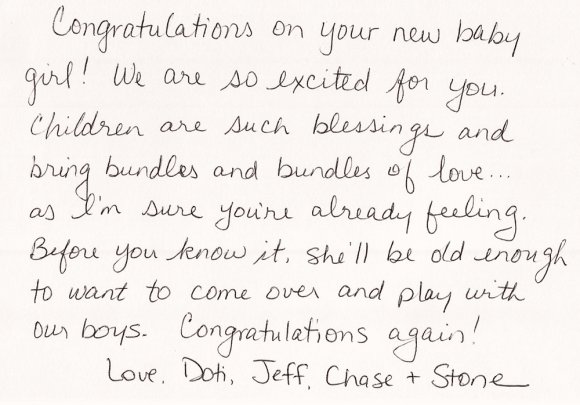 Congratulations on your new baby
girl! We are so excited for you.
Children are such blessings and
bring bundles and bundles of love...
as I'm sure you're already feeling.
Before you know it, she'll be old enough
to want to come over and play with
our boys. Congratulations again!
Love, Doti, Jeff, Chase + Stone